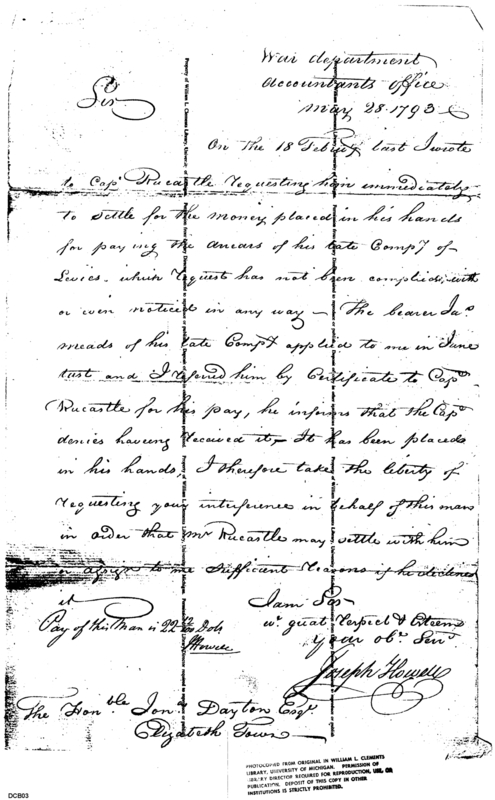 War department
Accountants office
May 28. 1793
Sir
On the 18 Febru^y last I wrote
to Cap^t Rucastle requesting him immediately
to settle for the money placed in his hands
for paying the arrears of his late Comp^y of
Levies. which request has not been complied, with
or even noticed in any way — The bearer Ja^s
Meads of his late Comp^y applied to me in June
last and I referred him by Certificate to Cap^t
Rucastle for his pay, he informs that the Cap^t
denies haveing received it, — It has been placed
in his hands, I therefore take the liberty of
requesting your interference in behalf of this man
in order that M^r Rucastle may settle with him
or assign to me sufficient reasons if he declines
it
I am Sir
w^t great respect & Esteem
your ob^t Serv^t
Joseph Howell
Pay of this Man is 22 Dols
JHowell
The Hon^ble Jon^a Dayton Esq^r
Elizabeth Town
Property of William L. Clements Library
PHOTOCOPIED FROM ORIGINAL IN WILLIAM L. CLEMENTS
LIBRARY, UNIVERSITY OF MICHIGAN. PERMISSION OF
LIBRARY DIRECTOR REQUIRED FOR REPRODUCTION, USE, OR
PUBLICATION. DEPOSIT OF THIS COPY IN OTHER
INSTITUTIONS IS STRICTLY PROHIBITED.
DCB03